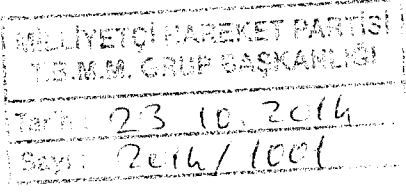 MİLLİYETÇİ HAREKET PARTİSİ
T.B.M.M. GRUP BAŞKANLIĞI
Tarih : 23 10. 2014
Sayı : 2014/1001